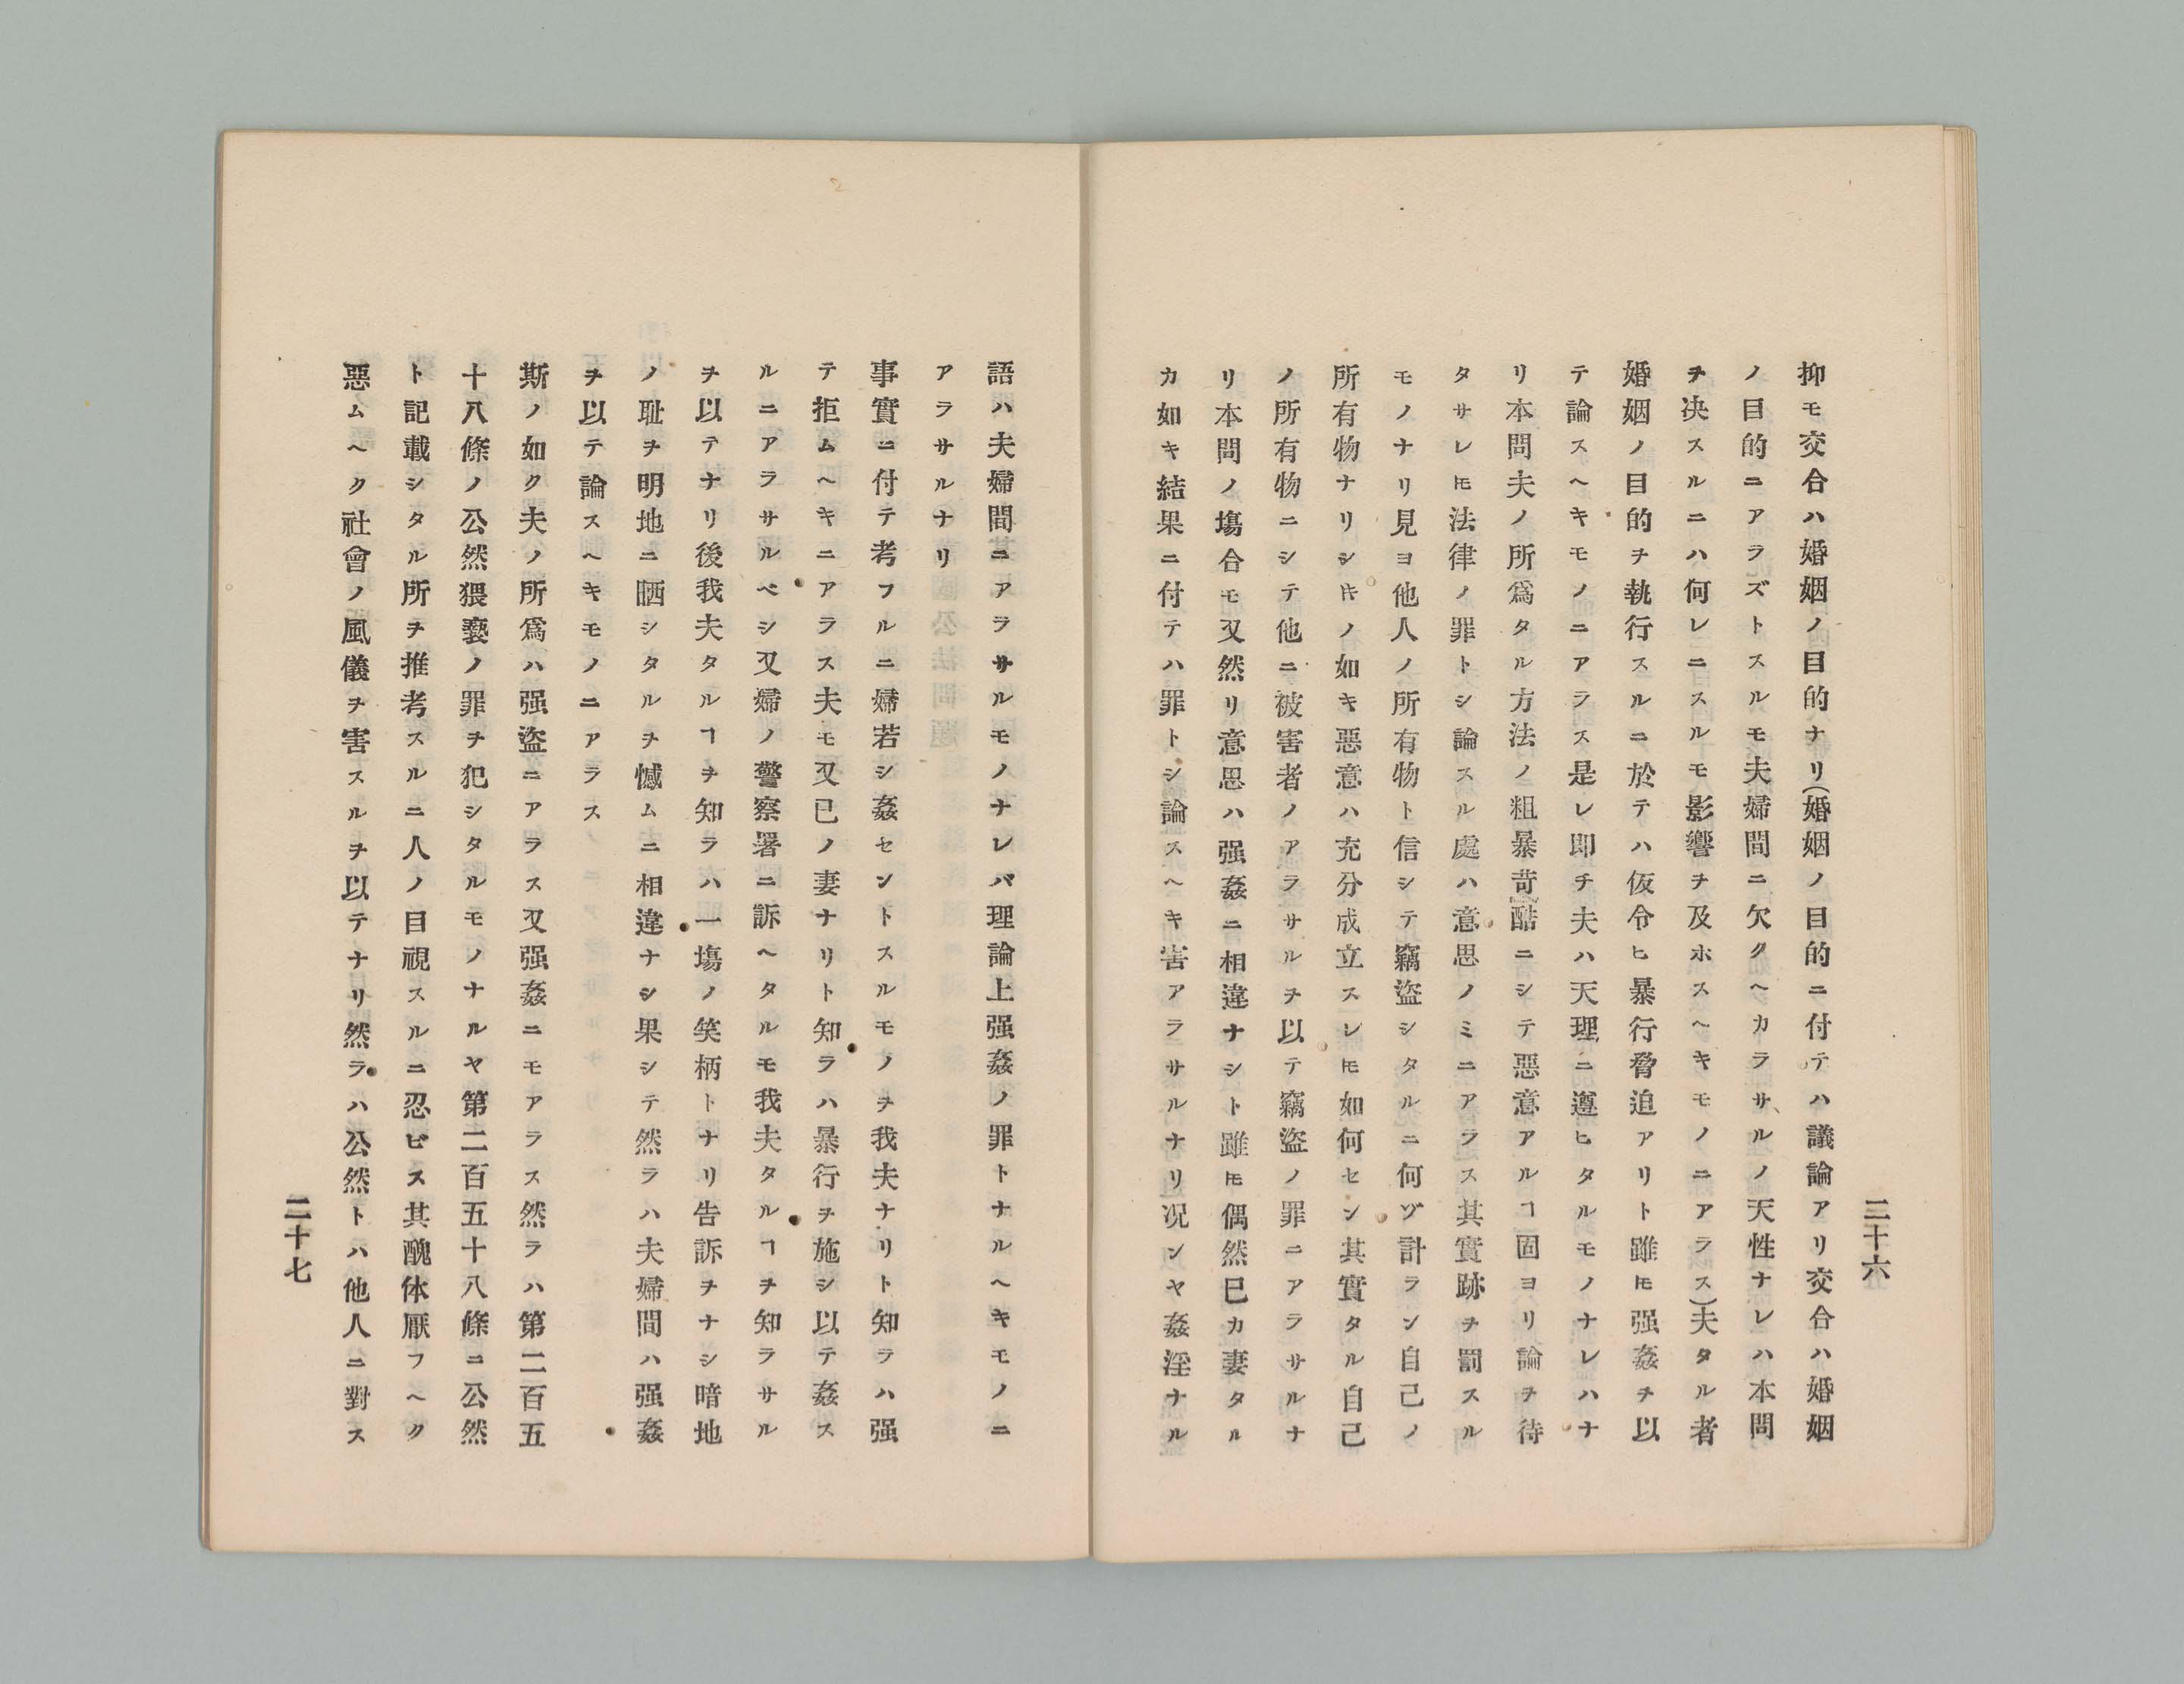 二十六
抑モ交合ハ婚姻ノ目的ナリ(婚姻ノ目的ニ付テハ議論アリ交合ハ婚姻
ノ目的ニアラズトスルモ夫婦間ニ欠クヘカラサルノ天性ナレハ本問
ヲ决スルニハ何レニスルモ影響ヲ及ホスヘキモノニアラス)夫タル者
婚姻ノ目的ヲ執行スルニ於テハ仮令ヒ暴行脅迫アリト雖𪜈强姦ヲ以
テ論スヘキモノニアラス是レ即チ夫ハ天理ニ遵ヒタルモノナレハナ
リ本問夫ノ所爲タル方法ノ粗暴苛酷ニシテ惡意アルヿ固ヨリ論ヲ待
タサレ𪜈法律ノ罪トシ論スル處ハ意思ノミニアラス其實跡ヲ罰スル
モノナリ見ヨ他人ノ所有物ト信シテ竊盜シタルニ何ヅ計ラン自己ノ
所有物ナリシ𬼀ノ如キ惡意ハ充分成立スレ𪜈如何セン其實タル自己
ノ所有物ニシテ他ニ被害者ノアラサルヲ以テ竊盜ノ罪ニアラサルナ
リ本問ノ塲合モ又然リ意思ハ强姦ニ相違ナシト雖𪜈偶然巳カ妻タル
カ如キ結果ニ付テハ罪トシ論スヘキ害アラサルナリ况ンヤ姦淫ナル
語ハ夫婦間ニアラサルモノナレバ理論上强姦ノ罪トナルヘキモノニ
アラサルナリ
事實ニ付テ考フルニ婦若シ姦セントスルモノヲ我夫ナリト知ラハ强
テ拒ムヘキニアラス夫モ又已ノ妻ナリト知ラハ暴行ヲ施シ以テ姦ス
ルニアラサルベシ又婦ノ警察署ニ訴ヘタルモ我夫タルヿヲ知ラサル
ヲ以テナリ後我夫タルヿヲ知ラハ一塲ノ笑柄トナリ告訴ヲナシ暗地
ノ耻ヲ明地ニ晒シタルヲ憾ムニ相違ナシ果シテ然ラハ夫婦間ハ强姦
ヲ以テ論スヘキモノニアラス
斯ノ如ク夫ノ所爲ハ强盜ニアラス又强姦ニモアラス然ラハ第二百五
十八條ノ公然猥褻ノ罪ヲ犯シタルモノナルヤ第二百五十八條ニ公然
ト記載シタル所ヲ推考スルニ人ノ目視スルニ忍ビス其醜体厭フヘク
惡ムヘク社會ノ風儀ヲ害スルヲ以テナリ然ラハ公然トハ他人ニ對ス
二十七